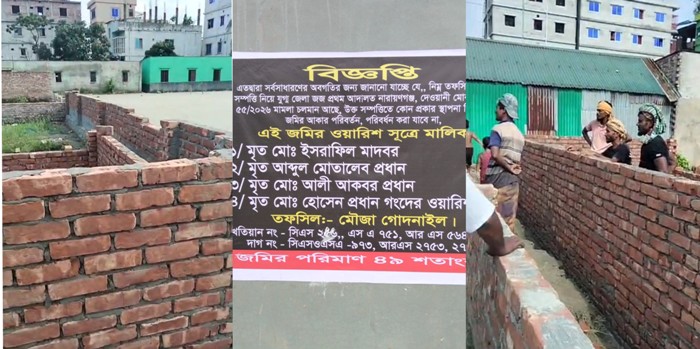 বিজ্ঞপ্তি
এতদ্বারা সর্বসাধারণের অবগতির জন্য জানানো যাচ্ছে যে, নিম্ন তফসি
সম্পত্তি নিয়ে যুগ্ম জেলা জজ প্রথম আদালত নারায়ণগঞ্জ, দেওয়ানী মো
৫৫/২০২৬ মামলা চলমান আছে, উক্ত সম্পত্তিতে কোন প্রকার স্থাপনা
জমির আকার পরিবর্তন, পরিবর্ধন করা যাবে না,
এই জমির ওয়ারিশ সূত্রে মালিক
১/ মৃত মোঃ ইসরাফিল মাদবর
২/ মৃত আব্দুল মোতালেব প্রধান
৩/ মৃত মোঃ আলী আকবর প্রধান
৪/ মৃত মোঃ হোসেন প্রধান গংদের ওয়ারিশ
তফসিল:- মৌজা গোদনাইল।
খতিয়ান নং - সিএস এস এ ৭৫১, আর এস ৫৬৪
দাগ নং - সিএসওএসএ -৯৭৩, আরএস ২৭৫৩, ২৭
জমির পরিমাণ ৪৯ শতাং